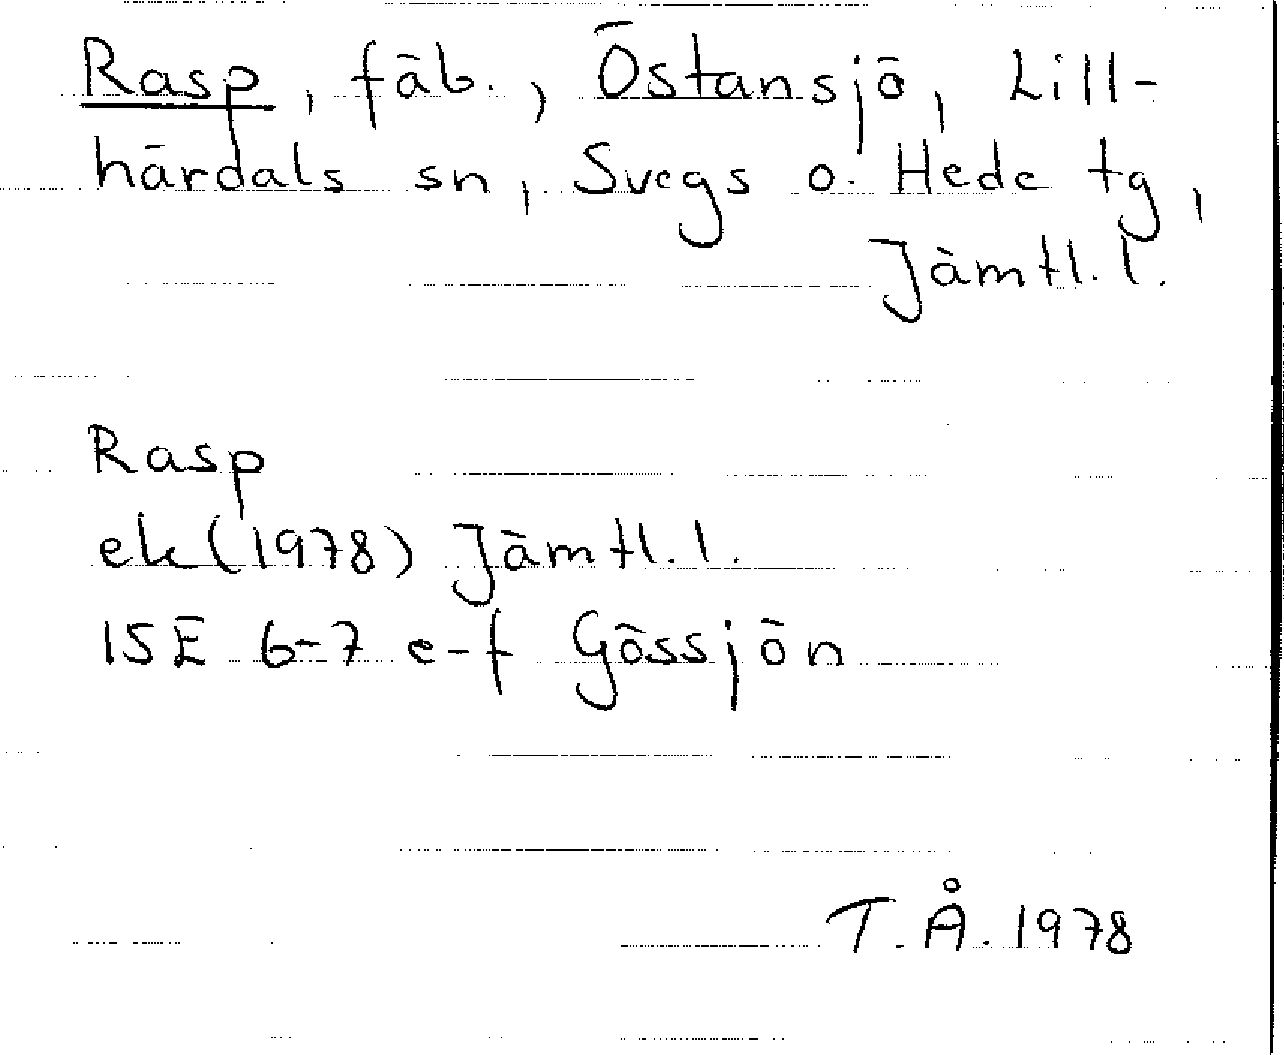 Rasp, fäb., Östansjö, Lill-
härdals sn, Svegs o. Hede tg,
Jämtl. l.
Rasp
ek (1978) Jämtl. l.
15E 6-7 e-f Gössjön
T. Å. 1978